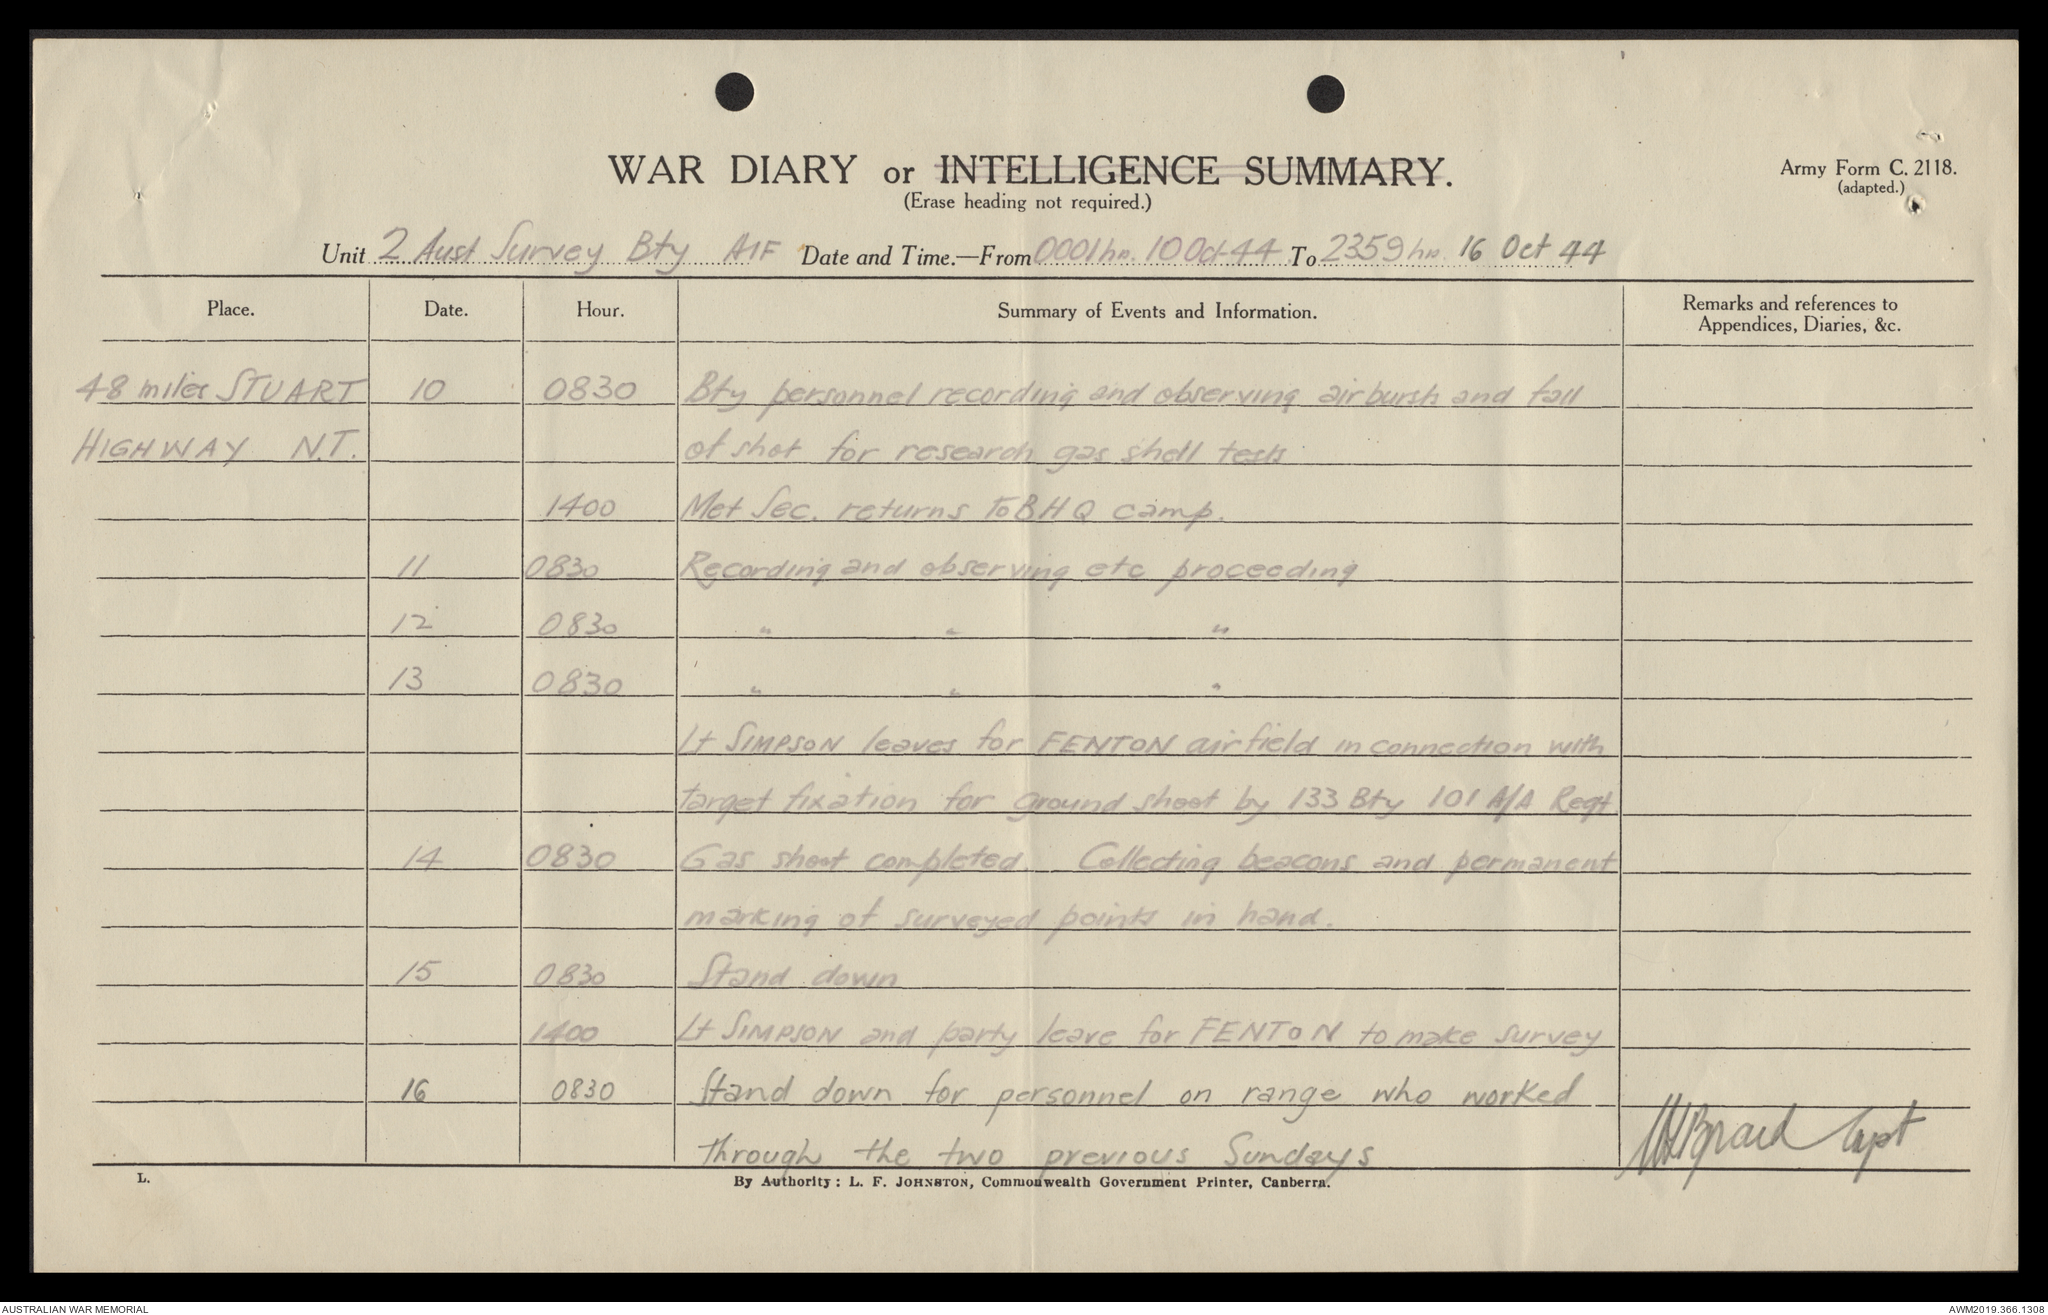 WAR DIARY or INTELLIGENCE SUMMARY.
(Erase heading not required.)
Army Form C. 2118.
(adapted.)
Unit 2 Aust Survey Bty AIF Date and Time.—From 0001 hrs. 10 Oct 44 To 2359 hrs 16 Oct 44
Place. Date. Hour. Summary of Events and Information. Remarks and references to
Appendices, Diaries, &c.
48 miles STUART 10 0830 Bty personnel recording and observing airbursts and fall
HIGHWAY N.T. of shot for research gas shell tests
1400 Met Sec. returns to BHQ camp.
11 0830 Recording and observing etc proceeding
12 0830 " " "
13 0830 " " "
Lt SIMPSON leaves for FENTON airfield in connection with
target fixation for ground shoot by 133 Bty 101 A/A Regt
14 0830 Gas shoot completed. Collecting beacons and permanent
marking of surveyed points in hand.
15 0830 Stand down
1400 Lt SIMPSON and party leave for FENTON to make survey
16 0830 Stand down for personnel on range who worked
through the two previous Sundays
Capt
L.
By Authority: L. F. JOHNSTON, Commonwealth Government Printer, Canberra.
AUSTRALIAN WAR MEMORIAL
AWM2019.366.1308